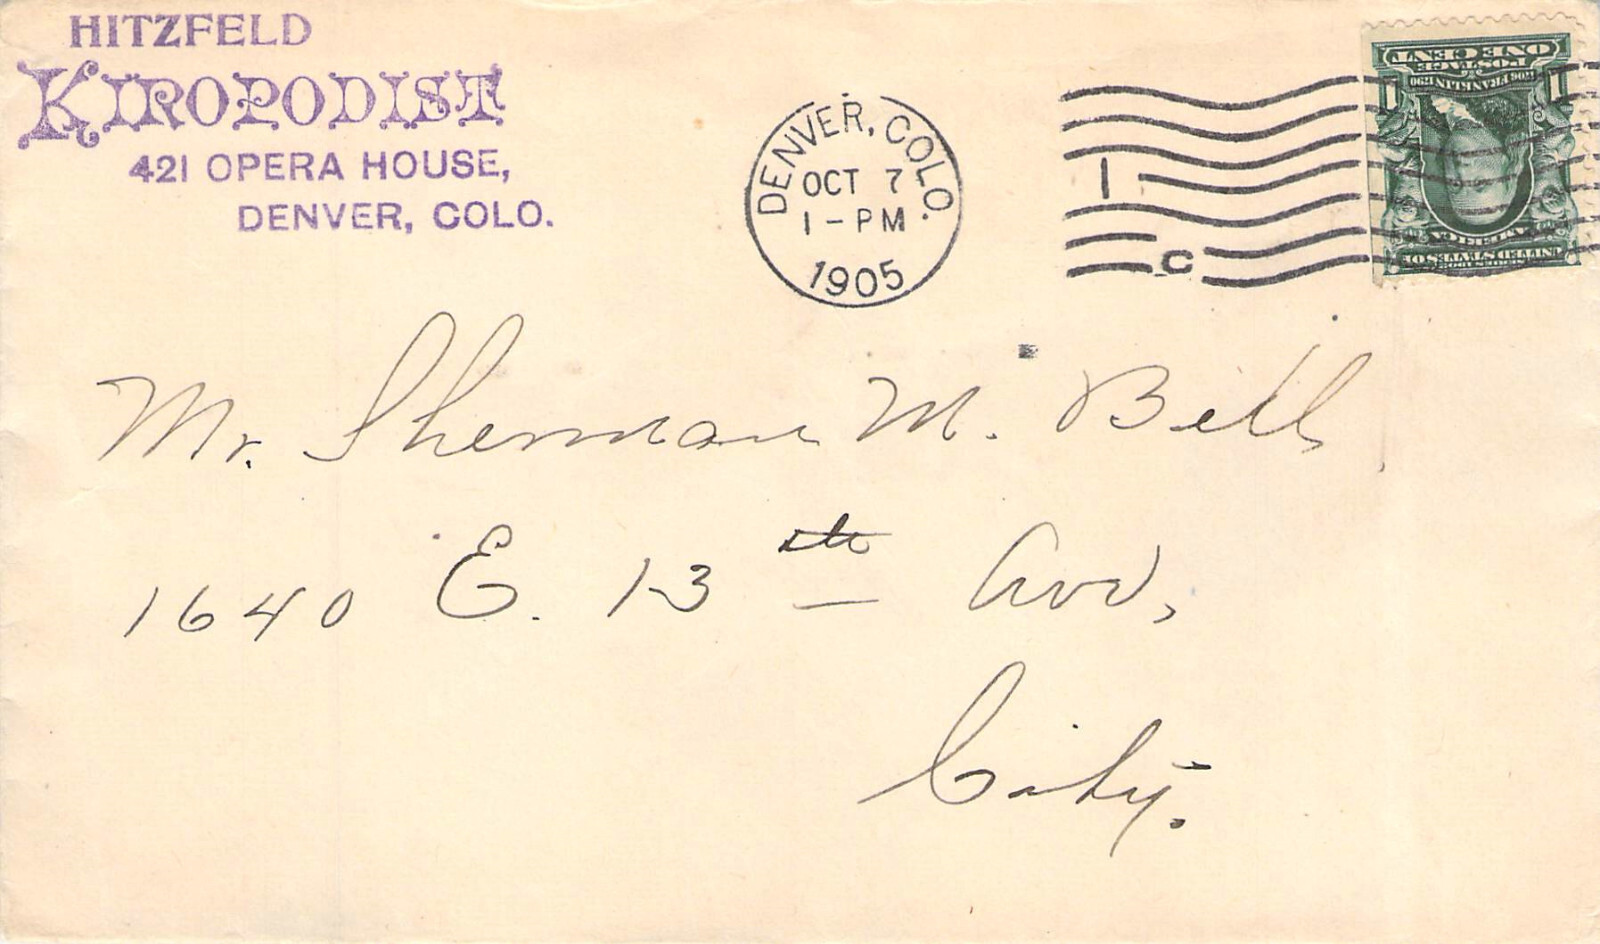 HITZFELD
KIROPODIST
421 OPERA HOUSE,
DENVER, COLO.
DENVER, COLO.
OCT 7
1-PM
1905
1
C
ONE CENT
POSTAGE
1706 FRANKLIN 1790
1 1
AMERICA
UNITED STATES OF
Mr. Sherman M. Bell,
1640 E. 13th Ave,
City.